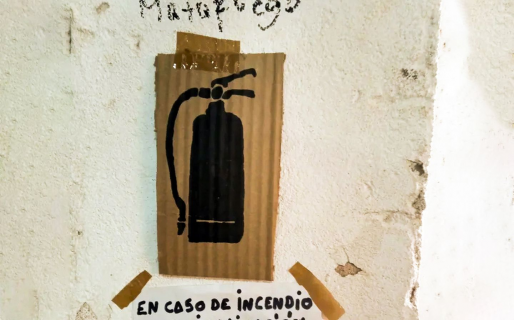 Matafuego
EN CASO DE INCENDIO